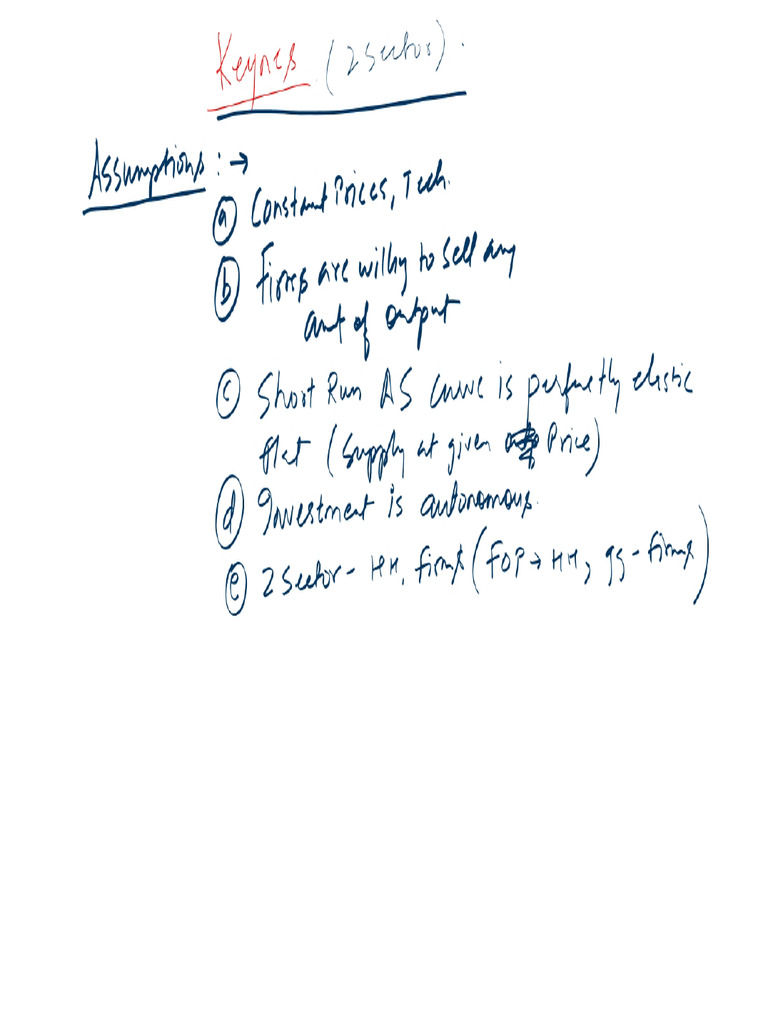 Keynes (2 Sector).
Assumptions :→
(a) Constant Prices, Tech.
(b) Firms are willing to sell any
amt of output
(c) Short Run AS curve is perfectly elastic
flat (Supply at given Price)
(d) Investment is autonomous.
(e) 2 Sector - HH, firms (FOP → HH, gs - firms)